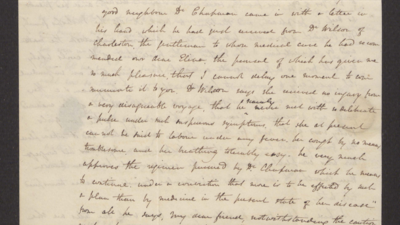 good neighbour Dr Chapman came in with a letter in
his hand which he had just received from Dr Wilson of
Charleston, the gentleman to whose medical care he had recom
mended our dear Eliza, the perusal of which has given me
so much pleasure that I cannot delay one moment to com
municate it to you. Dr Wilson says she received no injury from
a very disagreeable voyage that he merely met with a deliberate
a pulse under not suspicious symptoms, that she at present
cannot be said to labour under any fever her cough by no means
troublesome and her breathing tolerably easy. he very much
approves the regimen pursued by Dr Chapman which he means
to continue under a conviction that more is to be effected by such
a plan than by medicine in the present state of her disease
for all he says, my dear friend, notwithstanding the caution